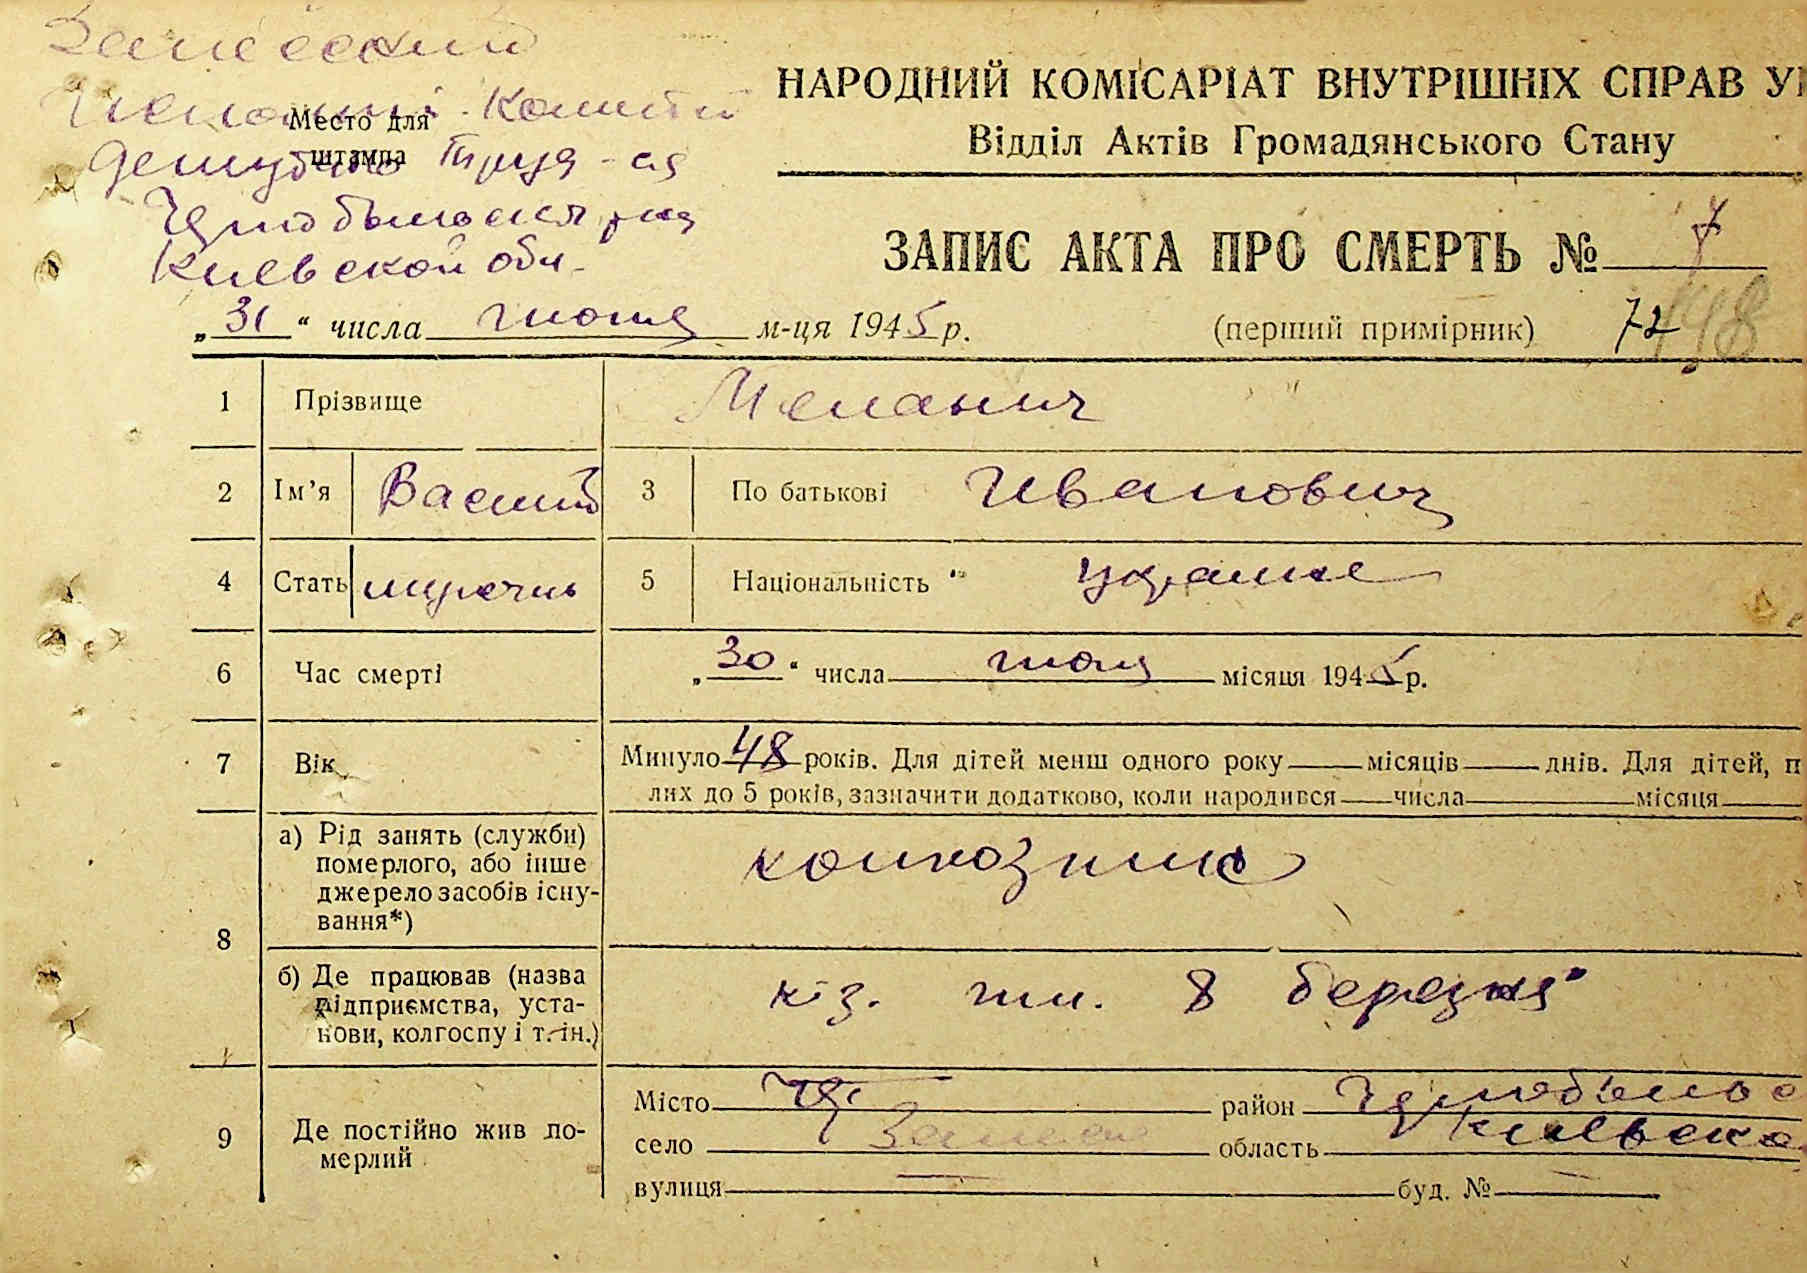 Место для
штампа
депутатов Труд-ся
Чернобыльск р-на
Киевской обл.
НАРОДНИЙ КОМІСАРІАТ ВНУТРІШНІХ СПРАВ У
Відділ Актів Громадянського Стану
ЗАПИС АКТА ПРО СМЕРТЬ № 7
„31“ числа июля м-ця 1945 р.
(перший примірник) 72 48
1 Прізвище Меланич
2 Ім’я Василий 3 По батькові Иванович
4 Стать 5 Національність украине
6 Час смерті „30“ числа июля місяця 1945 р.
7 Вік Минуло 48 років. Для дітей менш одного року місяців днів. Для дітей, п
лих до 5 років, зазначити додатково, коли народився числа місяця
8 а) Рід занять (служби)
померлого, або інше
джерело засобів існу-
вання*)
колхозник
б) Де працював (назва
підприємства, уста-
нови, колгоспу і т. ін.)
к-з. им. 8 березня
9 Де постійно жив по-
мерлий
Місто район Чернобыльс
село область Киевско
вулиця буд. №